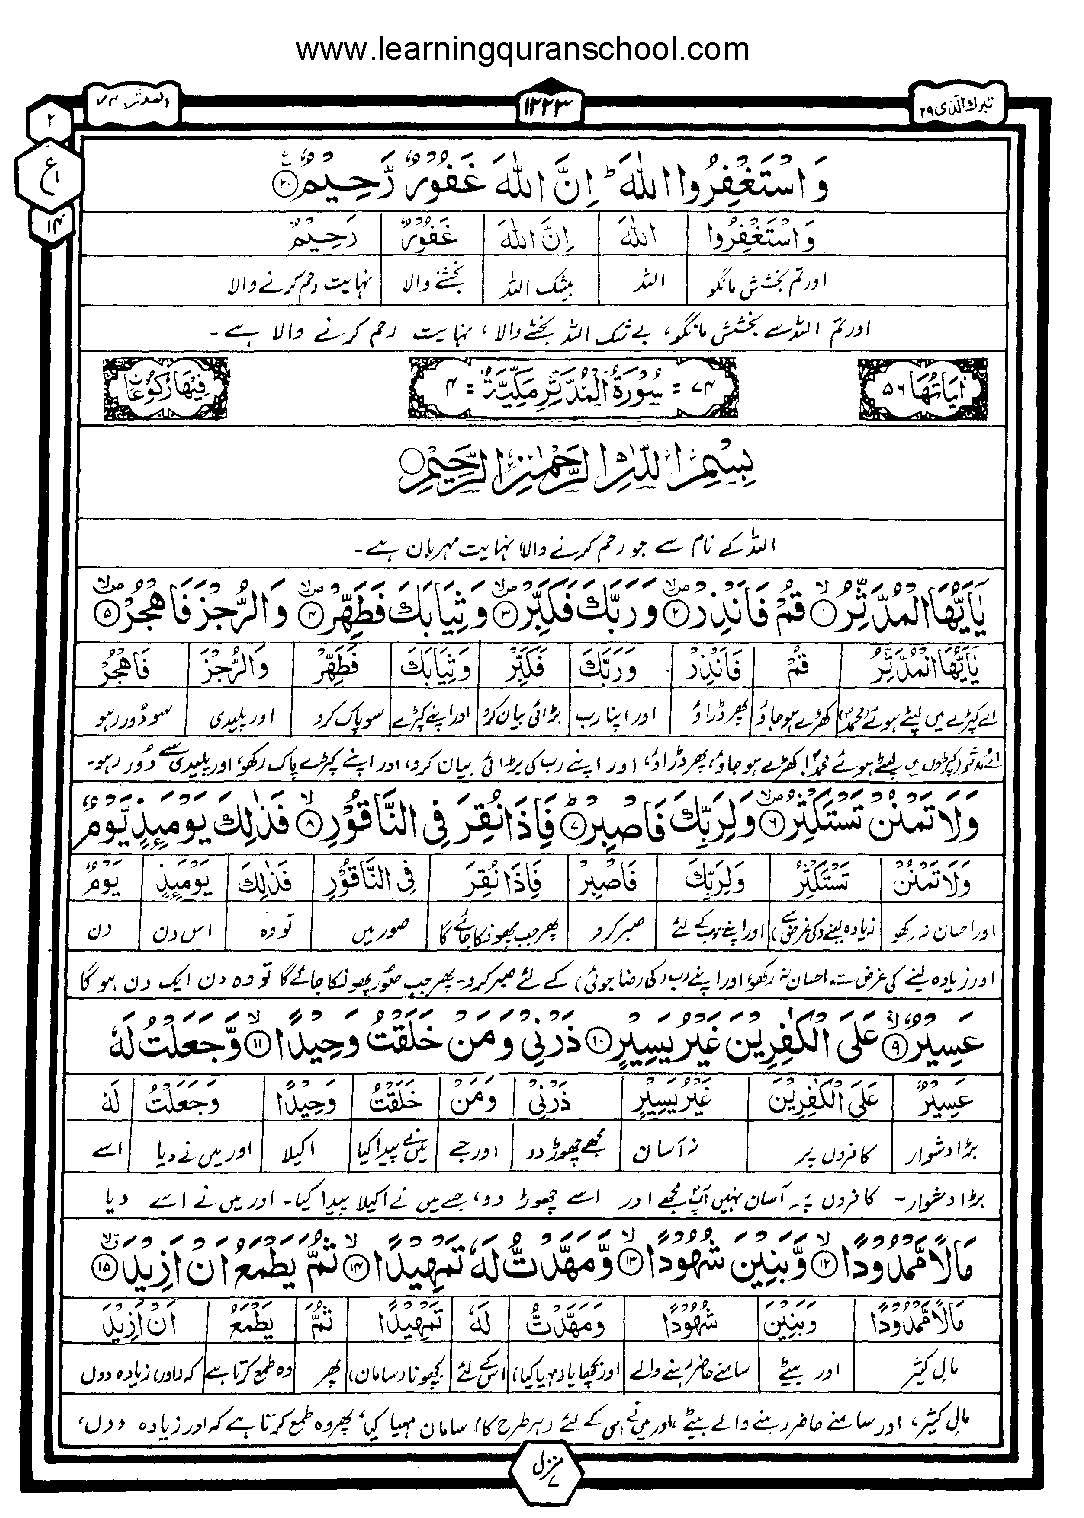 www.learningquranschool.com
تبرك الذی ٢٩ ١٢٢٣ المدثر ٧٤
٢
ع ١
١٤
وَاسْتَغْفِرُوا اللّٰهَ ؕ اِنَّ اللّٰهَ غَفُوْرٌ رَّحِيْمٌ ۟۠ ٢٠
وَاسْتَغْفِرُوا اللّٰهَ اِنَّ اللّٰهَ غَفُوْرٌ رَحِيْمٌ
اور تم بخشش مانگو اللہ بیشک اللہ بخشنے والا نہایت رحم کرنے والا
اور تم اللہ سے بخشش مانگو، بے شک اللہ بخشنے والا، نہایت رحم کرنے والا ہے۔
اٰیَاتُهَا ٥٦ ٧٤ = سُوْرَةُ الْمُدَّثِّرِ مَكِّيَّةٌ = ٤ فِيْهَا رُكُوْعَاتُ
بِسْمِ اللّٰهِ الرَّحْمٰنِ الرَّحِيْمِ
اللہ کے نام سے جو رحم کرنے والا نہایت مہربان ہے۔
يٰۤاَيُّهَا الْمُدَّثِّرُ ۙ ١ قُمْ فَاَنْذِرْ ٢ وَرَبَّكَ فَكَبِّرْ ٣ وَثِيَابَكَ فَطَهِّرْ ٤ وَالرُّجْزَ فَاهْجُرْ ٥
يٰۤاَيُّهَا الْمُدَّثِّرُ قُمْ فَاَنْذِرْ وَرَبَّكَ فَكَبِّرْ وَثِيَابَكَ فَطَهِّرْ وَالرُّجْزَ فَاهْجُرْ
اے کپڑے میں لپٹے ہوئے محمدؐ کھڑے ہو جاؤ پھر ڈراؤ اور اپنا رب بڑائی بیان کرو اور اپنے کپڑے سو پاک کرو اور پلیدی سو دور رہو
کپڑوں میں لپٹے ہوئے محمدؐ! کھڑے ہو جاؤ، پھر ڈراؤ، اور اپنے رب کی بڑائی بیان کرو، اور اپنے کپڑے پاک رکھو، اور پلیدی سے دور رہو۔
وَلَا تَمْنُنْ تَسْتَكْثِرُ ٦ وَلِرَبِّكَ فَاصْبِرْ ؕ ٧ فَاِذَا نُقِرَ فِي النَّاقُوْرِ ۙ ٨ فَذٰلِكَ يَوْمَئِذٍ يَّوْمٌ
وَلَا تَمْنُنْ تَسْتَكْثِرُ وَلِرَبِّكَ فَاصْبِرْ فَاِذَا نُقِرَ فِي النَّاقُوْرِ فَذٰلِكَ يَوْمَئِذٍ يَوْمٌ
اور احسان نہ رکھو زیادہ لینے (کی غرض سے) اور اپنے رب کے لئے صبر کرو پھر جب پھونکا جائے گا صور میں تو وہ اس دن دن
اور زیادہ لینے کی غرض سے احسان نہ رکھو، اور اپنے رب (کی رضا جوئی) کے لئے صبر کرو۔ پھر جب صور پھونکا جائے گا تو وہ دن ایک دن ہو گا
عَسِيْرٌ ۙ ٩ عَلَى الْكٰفِرِيْنَ غَيْرُ يَسِيْرٍ ١٠ ذَرْنِيْ وَمَنْ خَلَقْتُ وَحِيْدًا ۙ ١١ وَّجَعَلْتُ لَهٗ
عَسِيْرٌ عَلَى الْكٰفِرِيْنَ غَيْرُ يَسِيْرٍ ذَرْنِيْ وَمَنْ خَلَقْتُ وَحِيْدًا وَجَعَلْتُ لَهٗ
بڑا دشوار کافروں پر نہ آسان مجھے چھوڑ دو اور جسے میں نے پیدا کیا اکیلا اور میں نے دیا اسے
بڑا دشوار۔ کافروں پر۔ آسان نہیں آپؐ مجھے اور اسے چھوڑ دو، جسے میں نے اکیلا پیدا کیا۔ اور میں نے اسے دیا
مَالًا مَّمْدُوْدًا ۙ ١٢ وَّبَنِيْنَ شُهُوْدًا ۙ ١٣ وَّمَهَّدْتُّ لَهٗ تَمْهِيْدًا ۙ ١٤ ثُمَّ يَطْمَعُ اَنْ اَزِيْدَ ١٥
مَالًا مَّمْدُوْدًا وَبَنِيْنَ شُهُوْدًا وَمَهَّدْتُّ لَهٗ تَمْهِيْدًا ثُمَّ يَطْمَعُ اَنْ اَزِيْدَ
مال کثیر اور بیٹے سامنے حاضر رہنے والے اس کے لئے بچھونا (سامان) پھر وہ طمع کرتا ہے کہ (اور) زیادہ دوں
مال کثیر، اور سامنے حاضر رہنے والے بیٹے، اور میں نے اس کے لئے (ہر طرح کا) سامان مہیا کیا، پھر وہ طمع کرتا ہے کہ اور زیادہ دوں،
منزل ٧